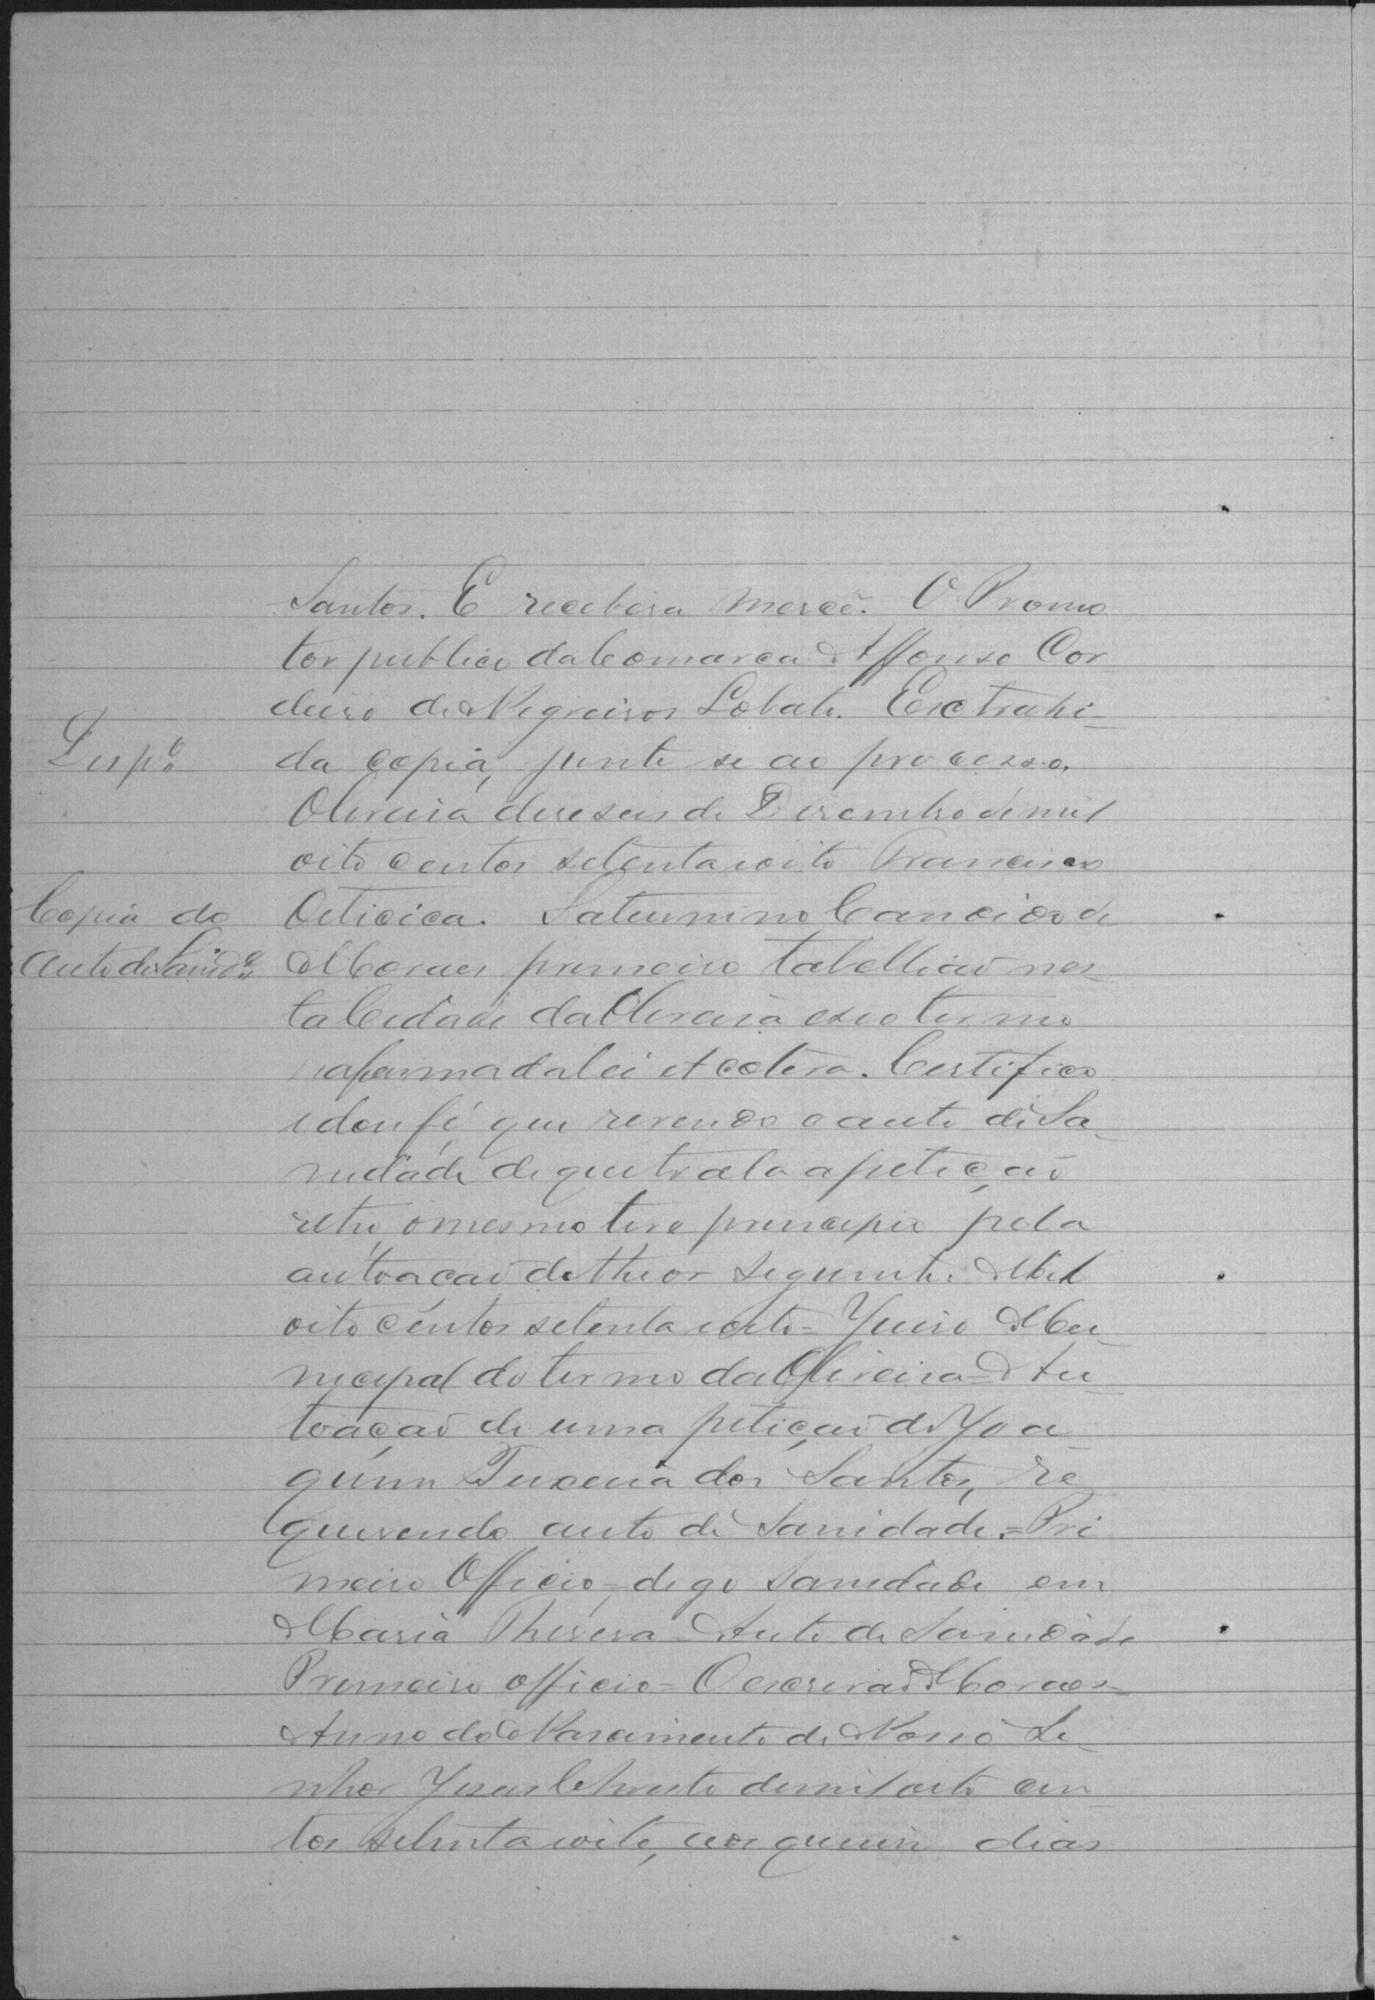 Santos. E recebera mercê. O Promo
tor publico da Comarca Affonso Cor
deiro de Negreiros Lobato. Extrahi-
Desp.o
da copia, junte se ao processo.
Oliveira deseseis de Dezembro de mil
oito centos setenta e oito Francisco
Copia do
Oiticica. Saturnino Candido de
Auto de Sanid.e
Moraes primeiro tabellião nes-
ta Cidade da Oliveira e seo termo
na forma da lei et cetera. Certifico
e dou fé que revendo o auto de Sa-
nidade de que trata a petição
retro, o mesmo teve principio pela
autoação do theor seguinte: Mil
oito centos setenta e oito = Juiso Mu-
nicipal do termo da Oliveira = Au-
toação de uma petição de Joa-
quim Teixeira dos Santos, re
querendo auto de Sanidade. = Pri
meiro Officio, = digo Sanidade em
Maria Thereza = Auto de Sanidade
Primeiro officio = O escrivão Moraes =
Anno do Nascimento de Nosso Se-
nhor Jesus Christo de mil oito cen-
tos setenta e oito, aos quinse dias